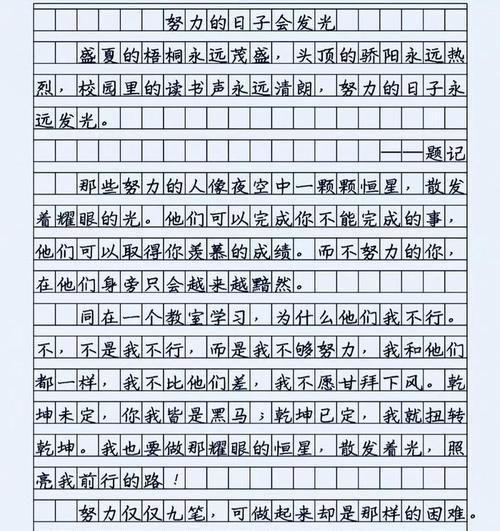 努力的日子会发光
盛夏的梧桐永远茂盛，头顶的骄阳永远热
烈，校园里的读书声永远清朗，努力的日子永
远发光。
——题记
那些努力的人像夜空中一颗颗恒星，散发
着耀眼的光。他们可以完成你不能完成的事，
他们可以取得你羡慕的成绩。而不努力的你，
在他们身旁只会越来越黯然。
同在一个教室学习，为什么他们我不行。
不，不是我不行，而是我不够努力，我和他们
都一样，我不比他们差，我不愿甘拜下风。乾
坤未定，你我皆是黑马；乾坤已定，我就扭转
乾坤。我也要做那耀眼的恒星，散发着光，照
亮我前行的路！
努力仅仅九笔，可做起来却是那样的困难。